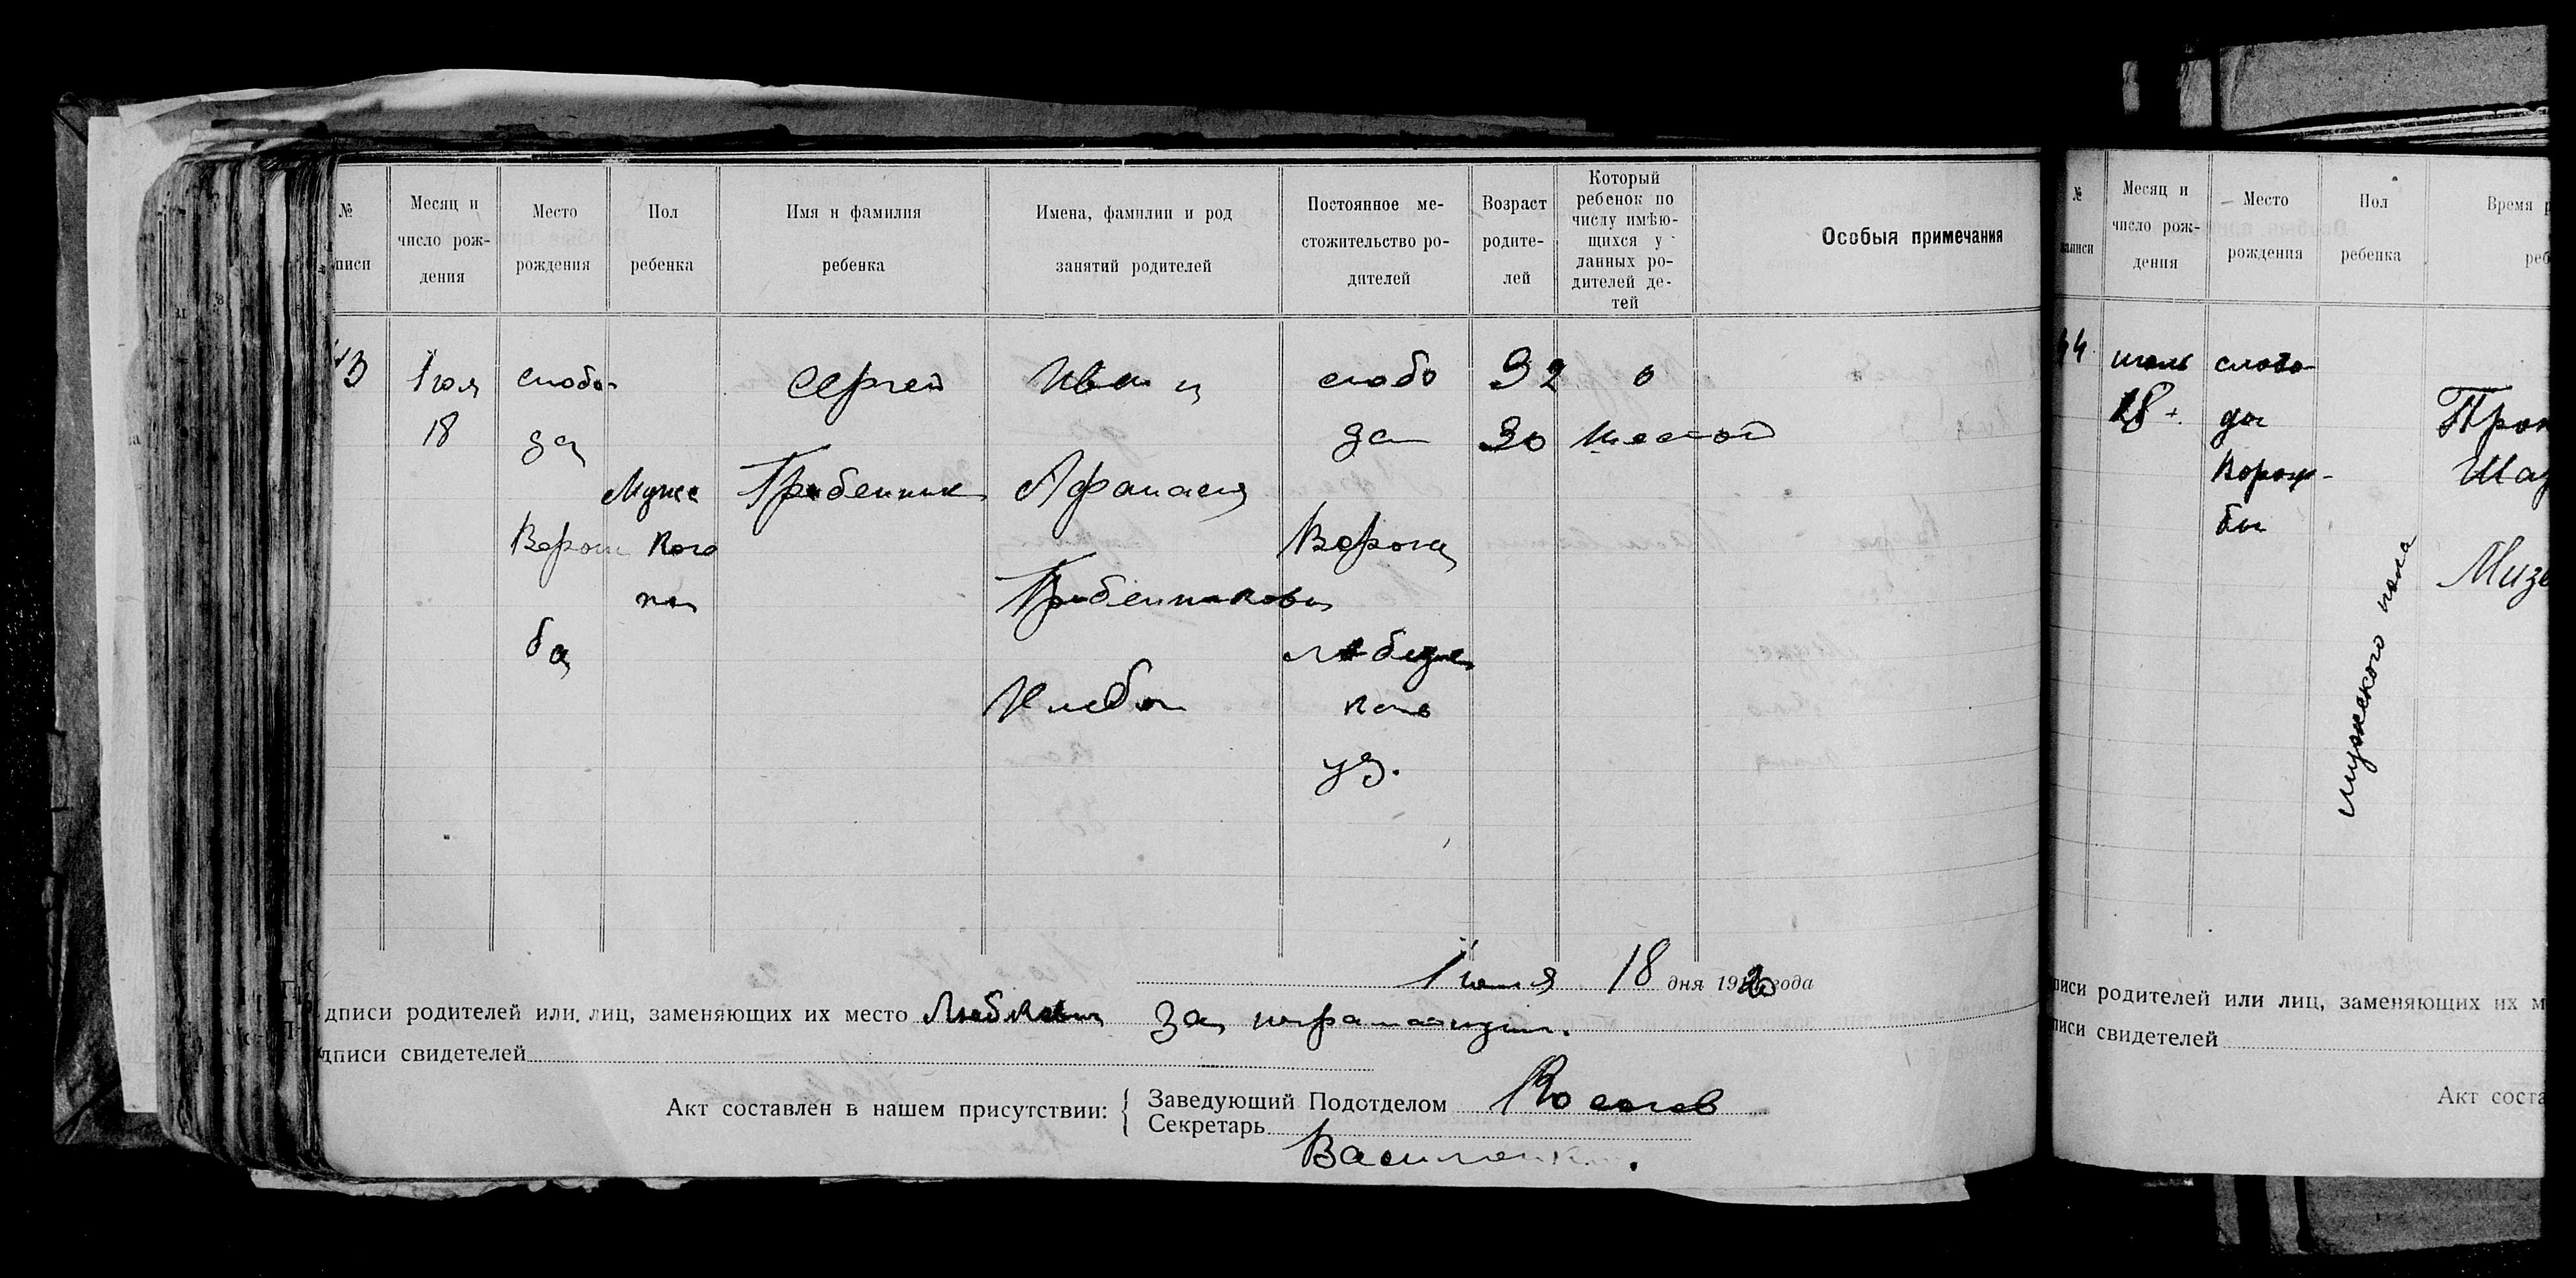 №
писи
Месяц и
число рож-
дения
Место
рождения
Пол
ребенка
Имя и фамилия
ребенка
Имена, фамилии и род
занятий родителей
Постоянное ме-
стожительство ро-
дителей
Возраст
родите-
лей
Который
ребенок по
числу имѣю-
щихся у
данных ро-
дителей де-
тей
Особыя примечания
43
Июля
18
слобо-
да
Ворож
ба
Мужс
кого
пол
Сергей
Гребенник
Иван и
Афанасия
Гребенникова
Хлебоп
слобо
да
Ворож
Лебедин
кого
уз.
32
30
0
Шестой
Июля 18 дня 1920 года
дписи родителей или лиц, заменяющих их место за неграмотную.
дписи свидетелей
Акт составлен в нашем присутствии:
Заведующий Подотделом
Секретарь
Василенко.
№
записи
Месяц и
число рож-
дения
Место
рождения
Пол
ребенка
Время р
реб
44
июль
18
слобо-
да
Ворож-
бы
мужского пола
Прок
Мизе
писи родителей или лиц, заменяющих их м
писи свидетелей
Акт соста